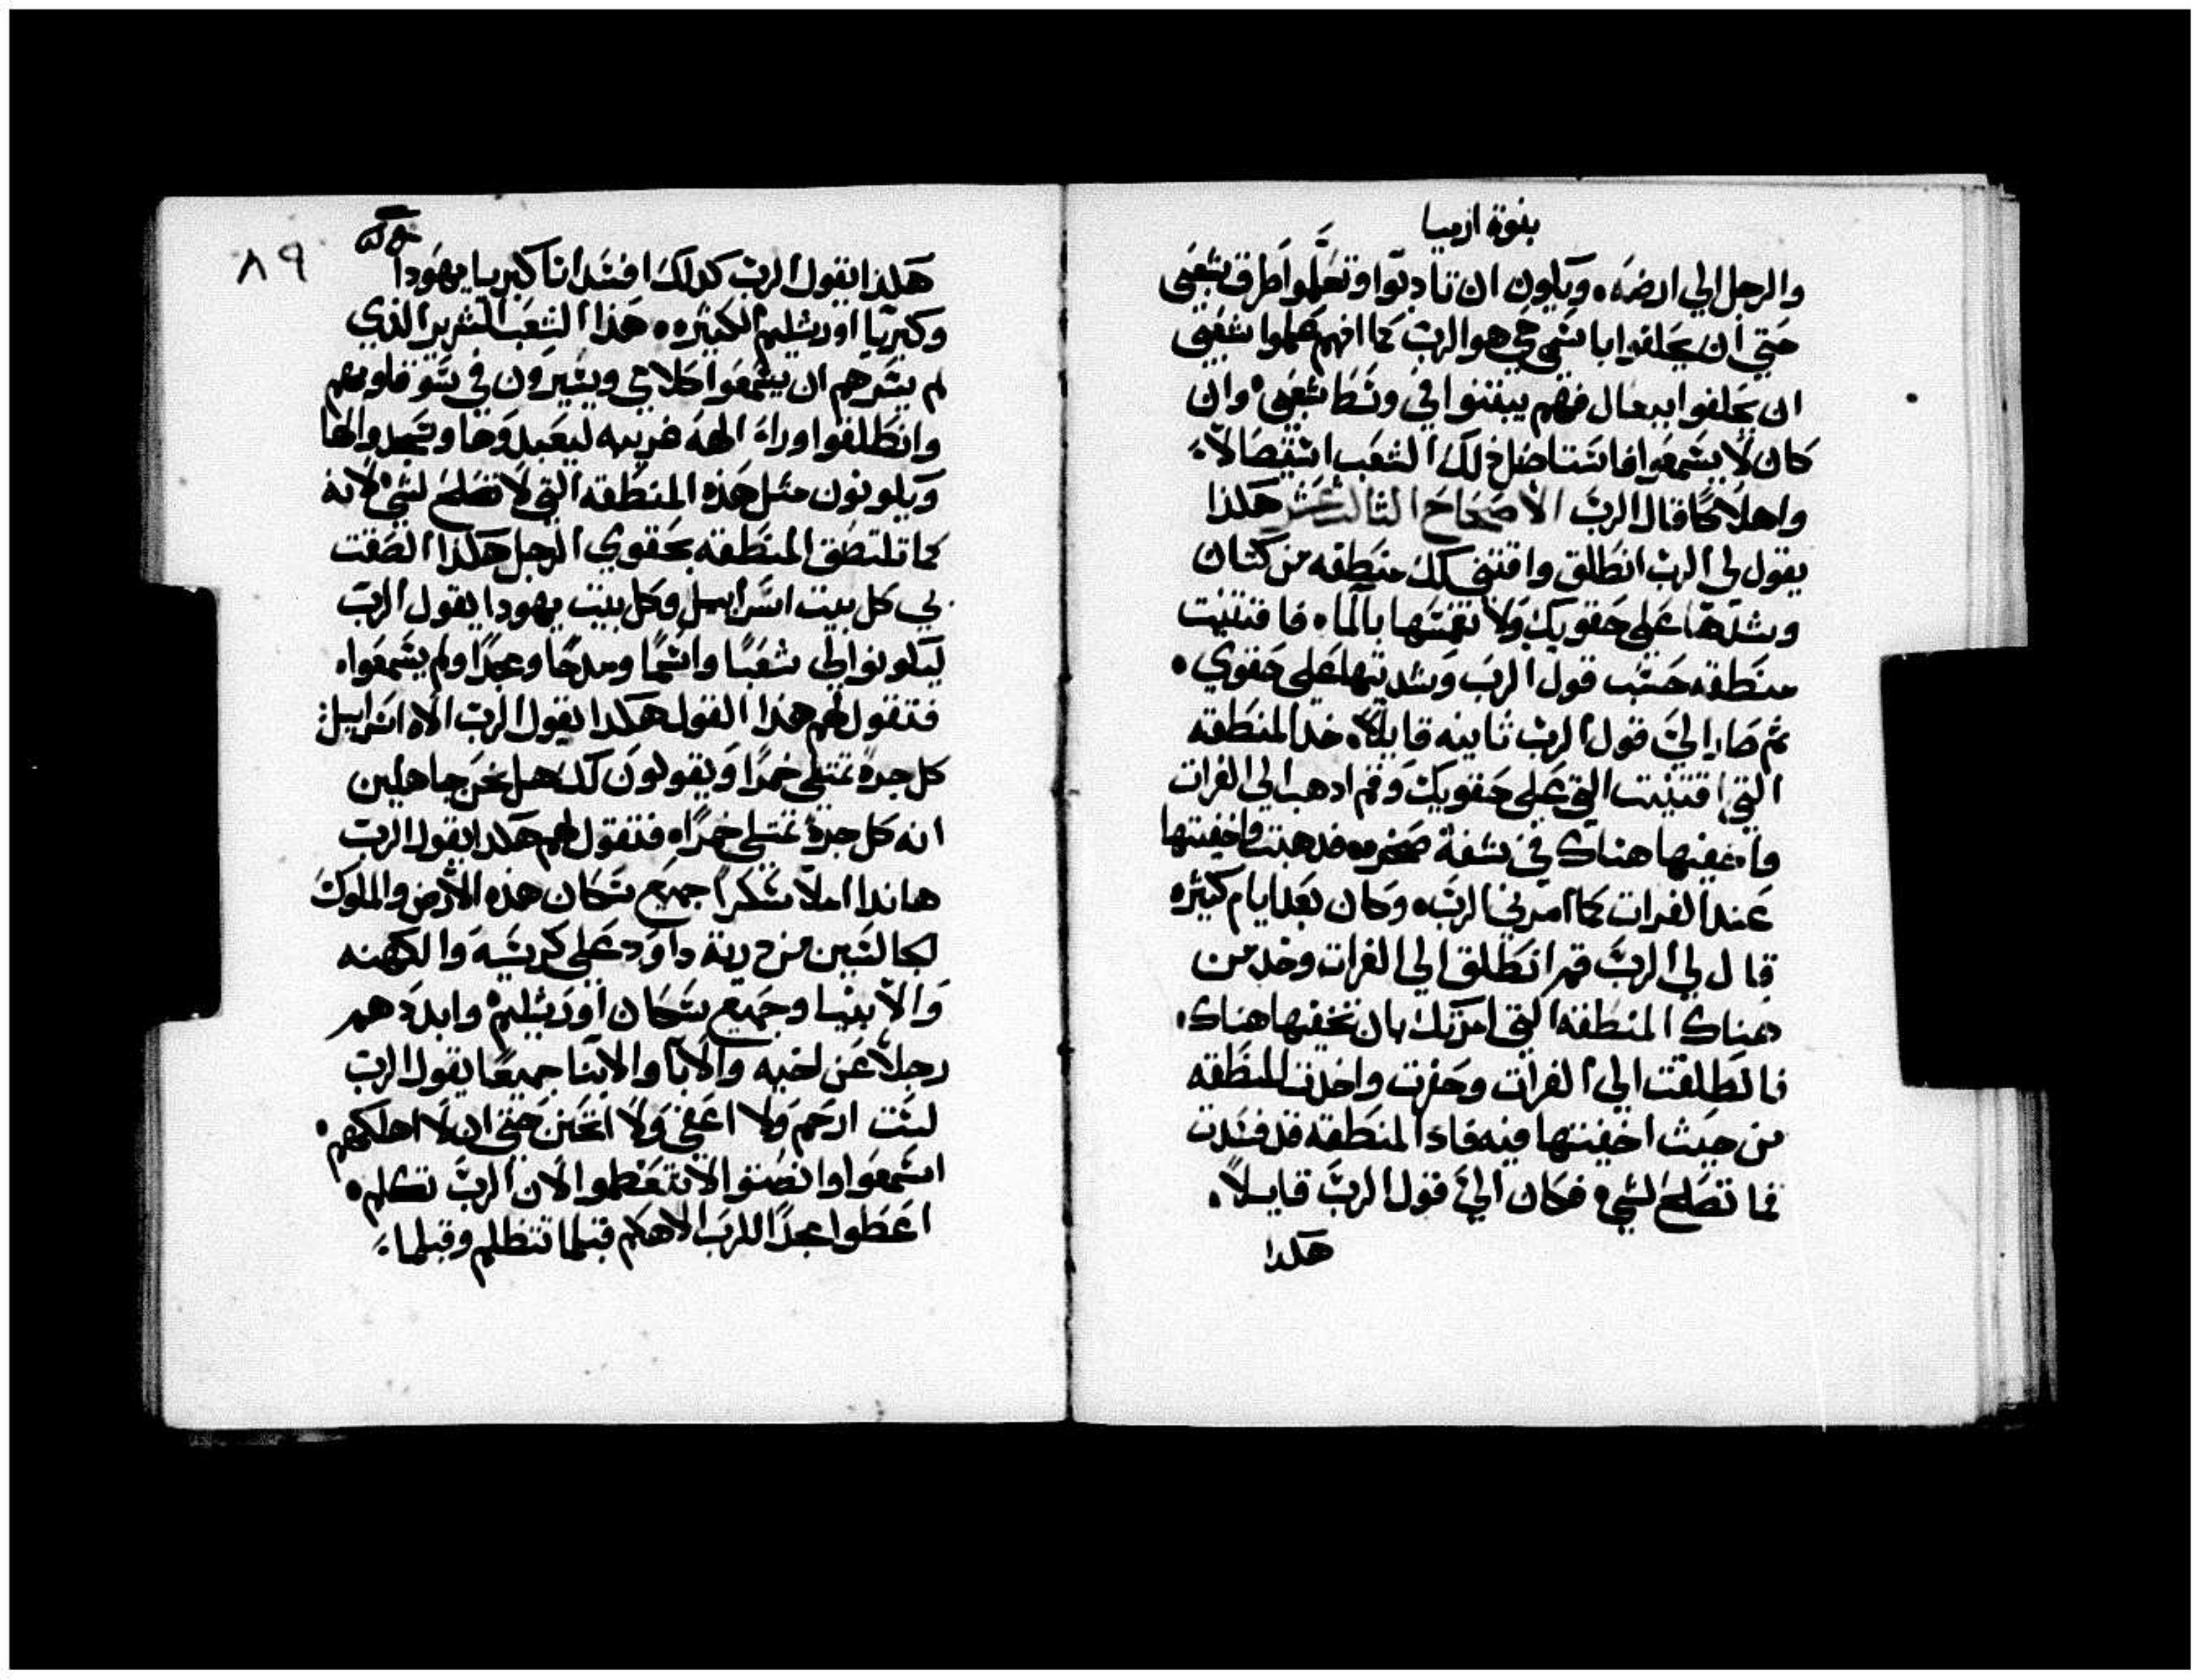 بنوة ارميا
والرجل الي ارضه. ويكون ان تادبوا وتعلموا طرق شعبى
حتي ان يحلفوا باسمي حي هو الرب كما انهم علموا شعبي
ان يحلفوا ببعال فهم يبتنوا في وسط شعبى وان
كان لا يسمعوا فاستاصل ذلك الشعب استيصالاً
واهلاكا قال الرب الاصحاح الثالث عشر هكذا
يقول لي الرب انطلق واقتني لك منطقه من كتان
وشدها على حقويك ولا تغمسها بالماء. فاقتنيت
منطقه حسب قول الرب وشديتها على حقوي.
ثم صار الي قول الرب ثانيه قايلاً. خد المنطقه
التي اقتنيت التي على حقويك وقم ادهب الي الفرات
واخفيها هناك في شفة صخره. فدهبت واخفيتها
عند الفرات كما امرني الرب. وكان بعد ايام كثيره
قال لي الرب قم انطلق الي الفرات وخد من
هناك المنطقه التي امرتك بان تخفيها هناك.
فانطلقت الي الفرات وحفرت واخدت المنطقه
من حيث اخفيتها فيه فادا المنطقه قد فسدت
فما تصلح لشي فكان الي قول الرب قايلاً.
هكدا
٨٩
هكذا يقول الرب كدلك افسد انا كبريا يهودا
وكبريا اورشليم الكثيره. هذا الشعب الشرير الذي
لم يسرهم ان يسمعوا كلامي ويسيرون في سو قلوبهم
وانطلقوا وراء الهه غريبه ليعبدوها ويسجدوا لها
ويكونون مثل هذه المنطقه التي لا تصلح لشي لانه
كما تلتصق المنطقه بحقوي الرجل هكدا الصقت
بي كل بيت اسراييل وكل بيت يهودا يقول الرب
ليكونوا لي شعبًا واسمًا ومدحًا ومجدًا ولم يسمعوا.
فتقول لهم هذا القول هكدا يقول الرب الاه اسراييل:
كل جرة تمتلي خمرًا ويقولون لك هل نحن جاهلين
انه كل جرة تمتلي خمرًا. فتقول لهم هكدا يقول الرب
هاندا املا سكرًا جميع سكان هذه الارض والملوك
الجالسين من درية داود على كرسيه والكهنه
والانبيا وجميع سكان اورشليم وابددهم
رجلاً عن اخيه والابا والابنا جميعًا يقول الرب
لست ارحم ولا اعفي ولا اتحنن حتى ان لا اهلكهم.
اسمعوا وانصتوا لا تتعظموا لان الرب تكلم.
اعطوا مجدًا للرب الاهكم قبلما تتظلم وقبلما